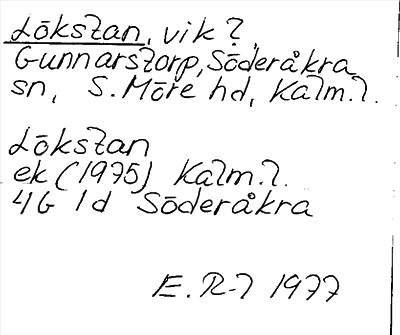 Lökstan, vik?,
Gunnarstorp, Söderåkra
sn, S. Möre hd, Kalm.l.
Lökstan
ek (1975) Kalm.l.
4G 1d Söderåkra
E. R-l 1977